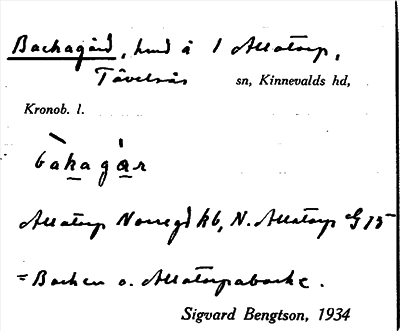 Backagård, hmd å 1 Allatorp,
Tävelsås sn, Kinnevalds hd,
Kronob. l.
bàkagár
Allatorp Norregård kb, N. Allatorp G 75
= Backen o. Allatorpabacke.
Sigvard Bengtson, 1934